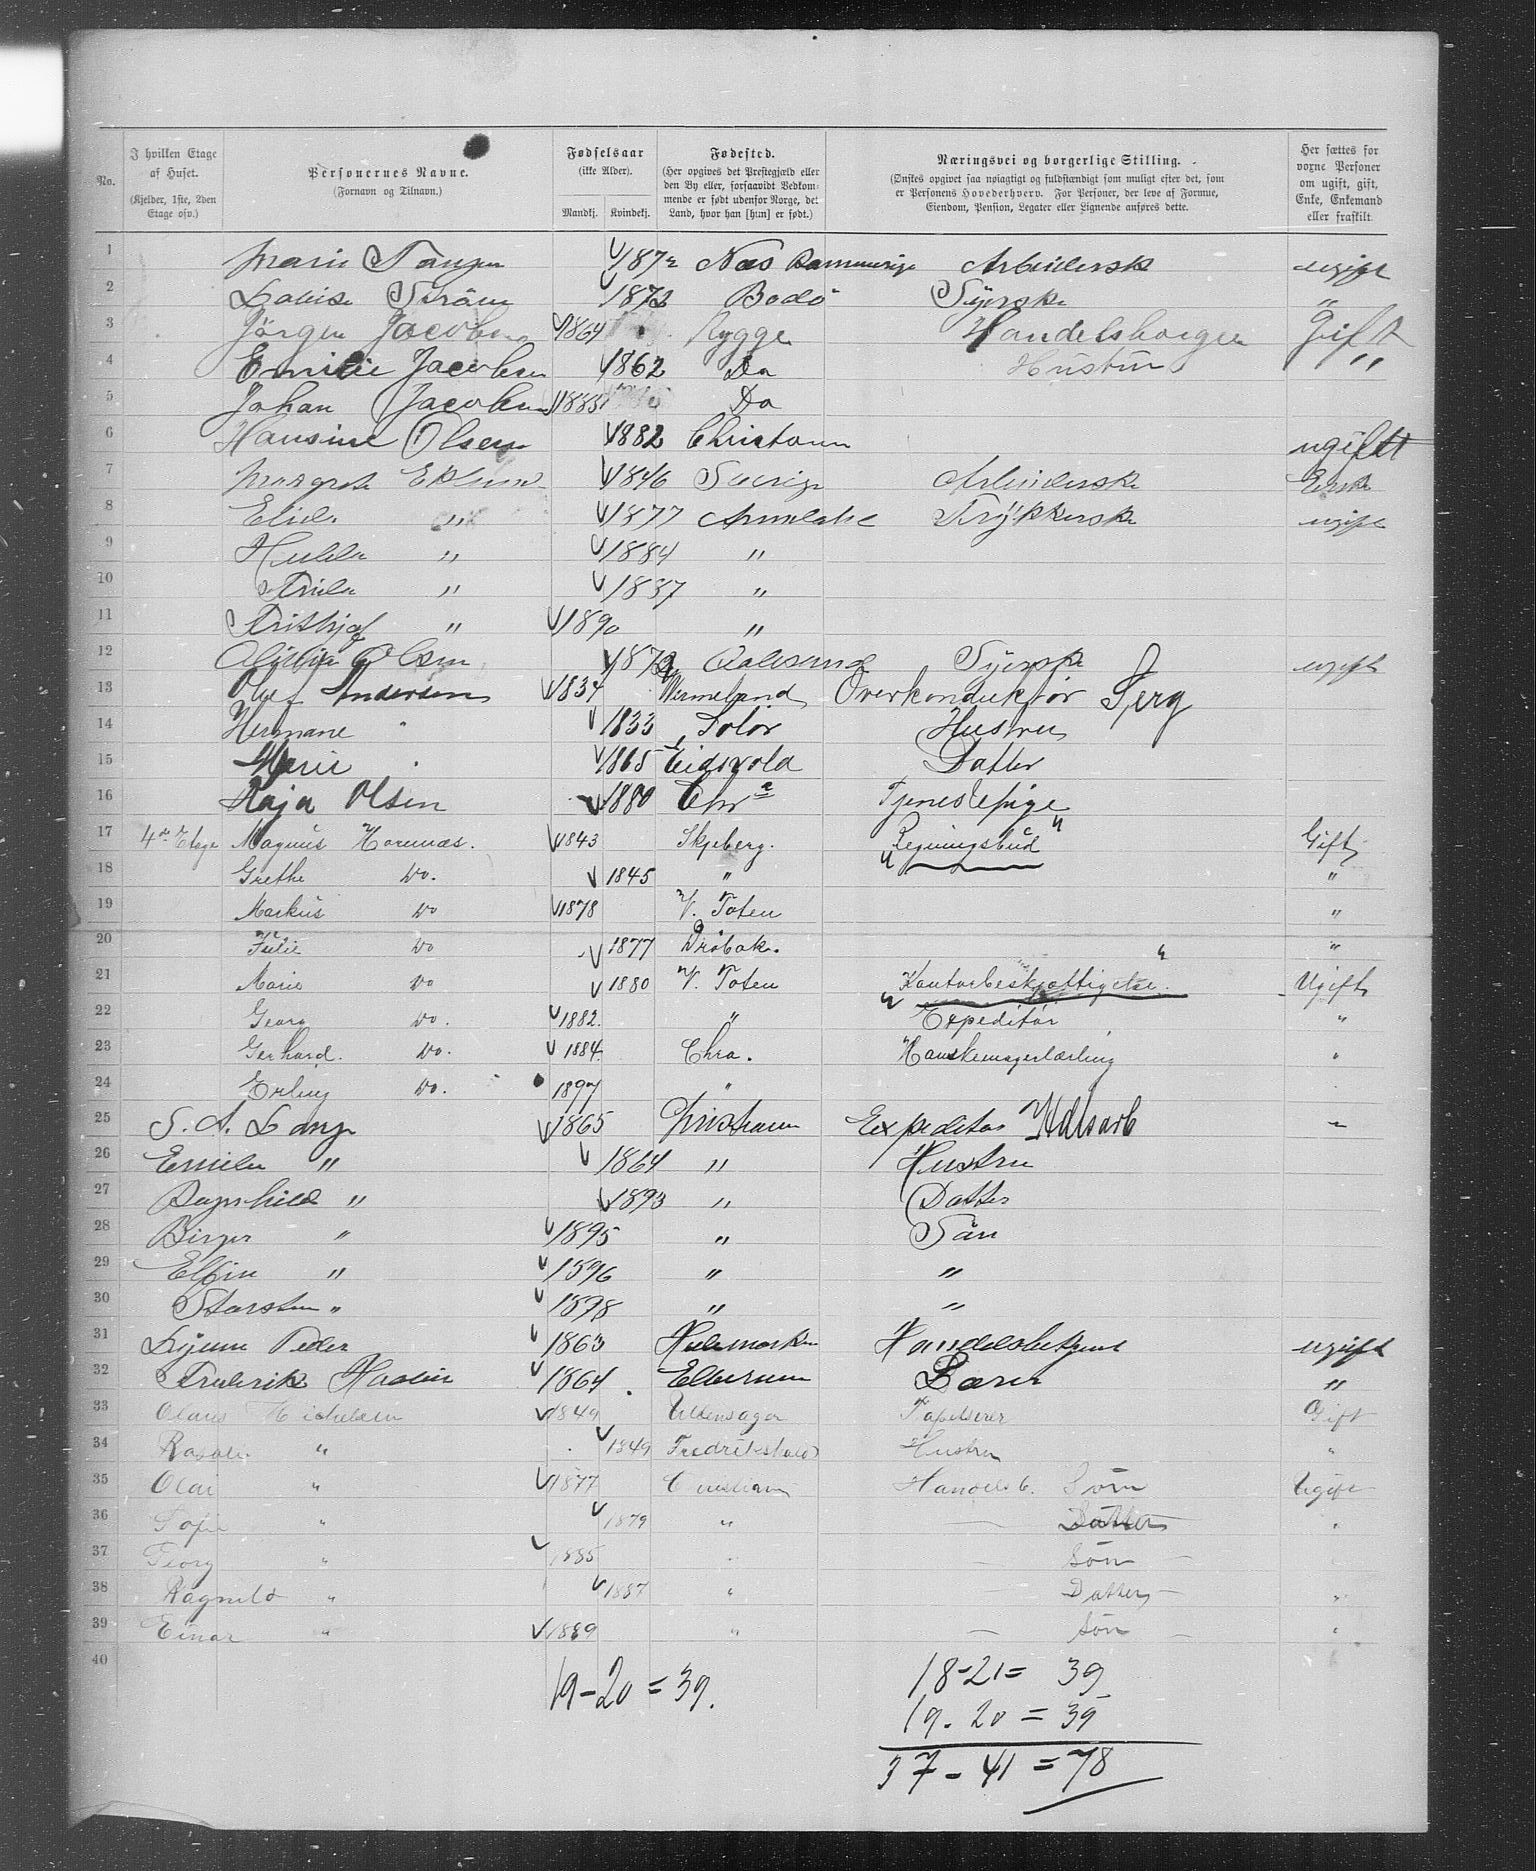 No. I hvilken Etage af Huset. (Kjelder, 1ste, 2den Etage osv.) Personernes Navne. (Fornavn og Tilnavn.) Fødselsaar (ikke Alder). Mandkj. Kvindekj. Fødested. (Her opgives det Prestegjæld eller den By eller, forsaavidt Vedkommende er født udenfor Norge, det Land, hvor han [hun] er født.) Næringsvei og borgerlige Stilling. (Ønskes opgivet saa nøiagtigt og fuldstændigt som muligt efter det, som er Personens Hovederhverv. For Personer, der leve af Formue, Eiendom, Pension, Legater eller Lignende anføres dette. Her sættes for voxne Personer om ugift, gift, Enke, Enkemand eller fraskilt
1 Marie 1872 Næs Arbeiderske ugift
2 Lovise Strøm 1872 Bodö Syerske "
3 Jörgen Jacobsen 1864 Rygge Handelsborger Gift
4 Emilie Jacobsen 1862 Do Hustru "
5 Johan Jacobsen 1885 Do
6 Hansine Olsen 1882 Christiania ugift
7 1846 Sverige Arbeiderske Enke
8 " 1877 Trykkerske ugift
9 Hulda " 1884 "
10 " 1887 "
11 Frithjof " 1890 "
12 Olsen 187 Aalesund Syerske ugift
13 Olaf Andersen 1834 Vermeland Overkonduktør
14 Hermane " 1833 Solør Hustru
15 Marie " 1865 Eidsvold Datter
16 Kaja Olsen 1880 Chr.a Tjenestepige
17 4de Etage Magnus Hornnæs. 1843 Skjeberg. Regningsbud Gift
18 Grethe Do. 1845 " "
19 Markus Do 1878 V. Toten "
20 Julie Do 1877 Drøbak. "
21 Marie Do 1880 V. Toten Kontorbeskjæftigelse. Ugift
22 Georg Do. 1882. " Expeditör "
23 Gerhard. Do. 1884. Chra. Hanskemagerlærling "
24 Erling Do. 1897 "
25 S. A. Lange 1865 Christiania Expeditør "
26 Emilie " 1864 " Hustru
27 Ragnhild " 1893 " Datter
28 Birger " 1895 " Sön
29 " 1896 " "
30 " 1898 " "
31 Peder 1863 Hedemarken Handelsbetjent ugift
32 Frederik 1864. Elverum Lærer "
33 Olaus Michelsen 1849 Ullensager Tapetserer Gift
34 " 1849 Fredrikshald Hustru "
35 Olai " 1877 Christiania Handelsb. Sön Ugift
36 Sofie " 1879 " Datter "
37 Georg " 1885 " Sön
38 Ragnild " 1887 " Datter "
39 Einar " 1889 " Sön "
40
19-20 = 39. 18-21 = 39
19. 20 = 39
37-41 = 78